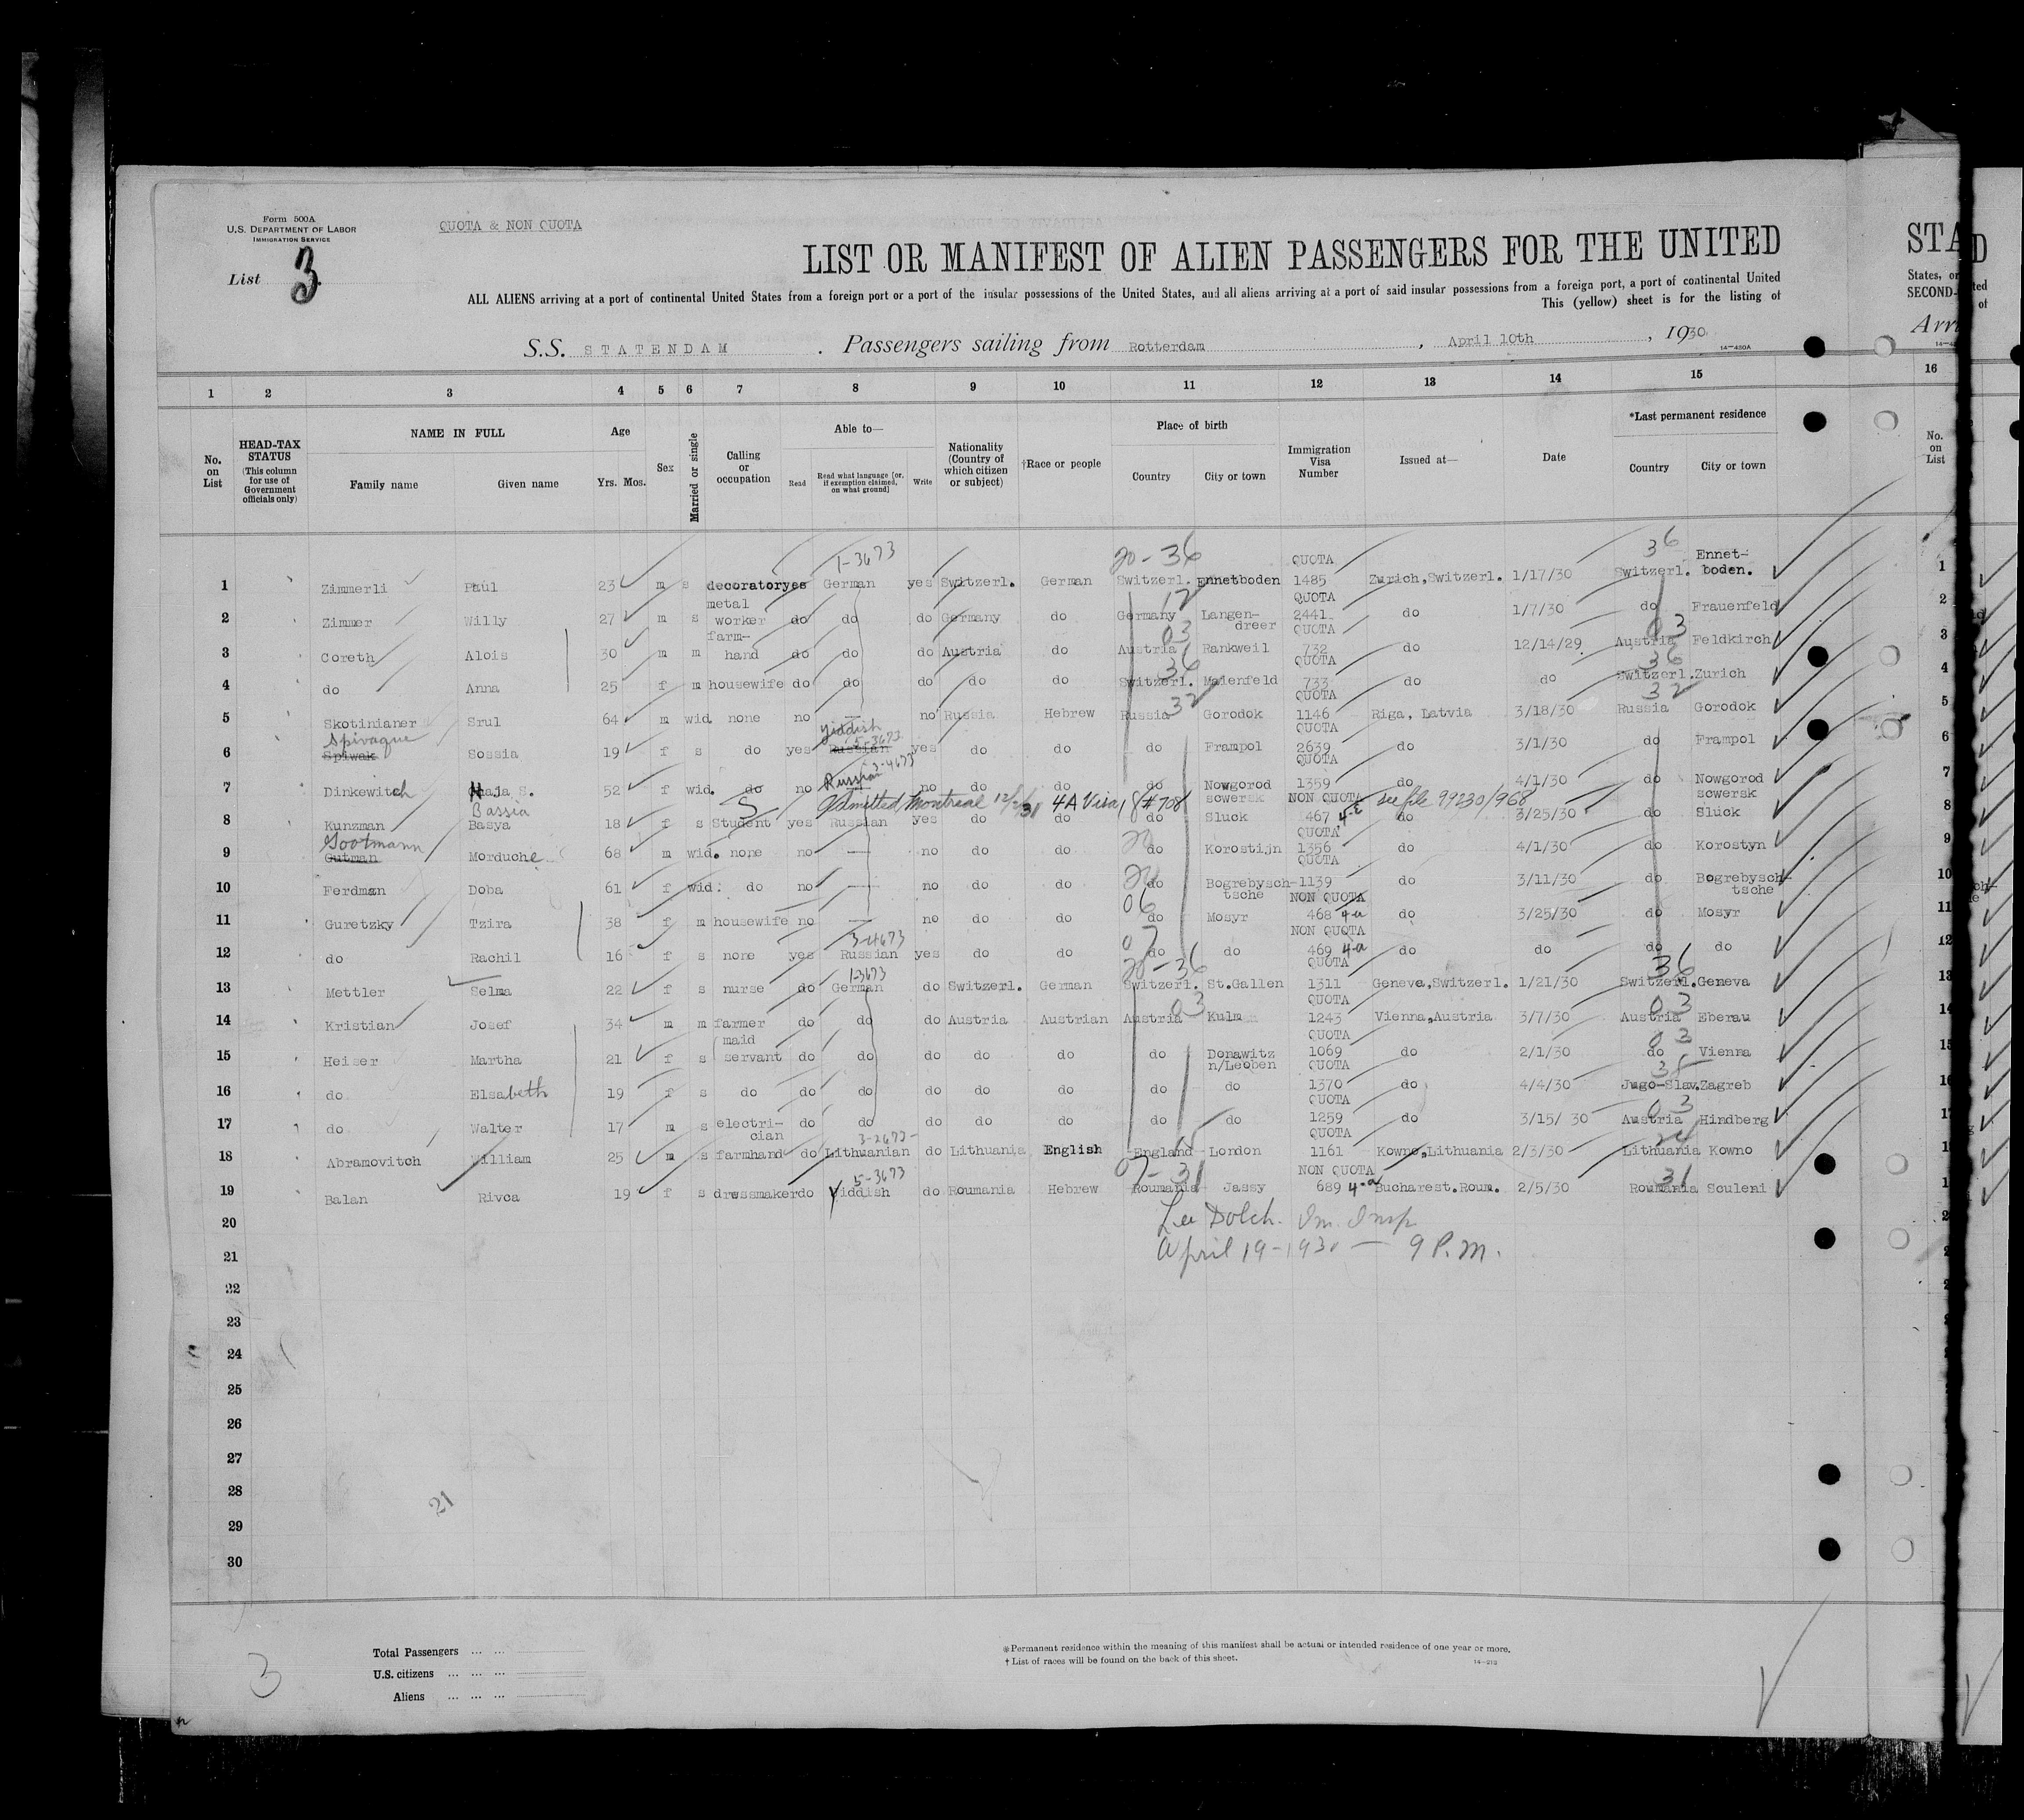 Form 500A
U.S. DEPARTMENT OF LABOR
IMMIGRATION SERVICE
QUOTA & NON QUOTA
List 3
LIST OR MANIFEST OF ALIEN PASSENGERS FOR THE UNITED
ALL ALIENS arriving at a port of continental United States from a foreign port or a port of the insular possessions of the United States, and all aliens arriving at a port of said insular possessions from a foreign port, a port of continental United
This (yellow) sheet is for the listing of
S.S. STATENDAM . Passengers sailing from Rotterdam , April 10th , 1930
14—430A
1 2 3 4 5 6 7 8 9 10 11 12 13 14 15
No. on List
HEAD-TAX STATUS (This column for use of Government officials only)
NAME IN FULL
Family name Given name
Age
Yrs. Mos.
Sex
Married or single
Calling or occupation
Able to—
Read Read what language (or, if exemption claimed, on what ground) Write
Nationality (Country of which citizen or subject)
†Race or people
Place of birth
Country City or town
Immigration Visa Number
Issued at—
Date
*Last permanent residence
Country City or town
1-3673 20-36 QUOTA 36 Ennet-
1 Zimmerli Paul 23 m s decorator yes German yes Switzerl. German Switzerl. Ennetboden 1485 Zurich,Switzerl. 1/17/30 Switzerl. boden.
metal 12 QUOTA
2 Zimmer Willy 27 m s worker do do do Germany do Germany Langen-dreer 2441 do 1/7/30 do Frauenfeld
farm- 03 QUOTA 03
3 Coreth Alois 30 m m hand do do do Austria do Austria Rankweil 732 do 12/14/29 Austria Feldkirch
36 QUOTA 36
4 do Anna 25 f m housewife do do do do do Switzerl. Maienfeld 733 do do Switzerl. Zurich
32 QUOTA 32
5 Skotinianer Srul 64 m wid none no — no Russia Hebrew Russia Gorodok 1146 Riga, Latvia 3/18/30 Russia Gorodok
Spivaque Yiddish 5-3673 QUOTA
6 Spiwak Sossia 19 f s do yes Russian yes do do do Frampol 2639 do 3/1/30 do Frampol
Russian 3-4673 QUOTA
7 Dinkewitch Haja S. 52 f wid. do no no do do do Nowgorod sewersk 1359 do 4/1/30 do Nowgorod sewersk
Bassia S Admitted Montreal 12/2/31 4A Visa #708 NON QUOTA see file 99230/968
8 Kunzman Basya 18 f s Student yes Russian yes do do do Sluck 467 do 3/25/30 do Sluck
Gootmann QUOTA
9 Gutman Morduche 68 m wid. none no — no do do do Korostijn 1356 do 4/1/30 do Korostyn
QUOTA
10 Ferdman Doba 61 f wid. do no — no do do do Bogrebysch-tsche 1139 do 3/11/30 do Bogrebysch-tsche
06 NON QUOTA
11 Guretzky Tzira 38 f m housewife no — no do do do Mosyr 468 4-a do 3/25/30 do Mosyr
3-4673 07 NON QUOTA
12 do Rachil 16 f s none yes Russian yes do do do do 469 4-a do do do do
1-3673 20-36 QUOTA 36
13 Mettler Selma 22 f s nurse do German do Switzerl. German Switzerl. St.Gallen 1311 Geneva,Switzerl. 1/21/30 Switzerl. Geneva
03 QUOTA 03
14 Kristian Josef 34 m m farmer do do do Austria Austrian Austria Kulm 1243 Vienna,Austria 3/7/30 Austria Eberau
maid QUOTA 03
15 Heiser Martha 21 f s servant do do do do do do Donawitz n/Leoben 1069 do 2/1/30 do Vienna
QUOTA
16 do Elsabeth 19 f s do do do do do do do do 1370 do 4/4/30 Jugo-Slav. Zagreb
QUOTA 03
17 do Walter 17 m s electri-cian do do do do do do do 1259 do 3/15/30 Austria Hindberg
3-2673- 15 QUOTA
18 Abramovitch William 25 m s farmhand do Lithuanian do Lithuania English England London 1161 Kowno,Lithuania 2/3/30 Lithuania Kowno
5-3673 07-31 NON QUOTA 31
19 Balan Rivca 19 f s dressmaker do Yiddish do Roumania Hebrew Roumania Jassy 689 4-a Bucharest.Roum. 2/5/30 Roumania Sculeni
20 Lee Dolch. Im. Insp
21 April 19-1930 — 9 P.M.
22
23
24
25
26
27
28
21
29
30
Total Passengers ... ...
U.S. citizens ... ... ...
Aliens ... ... ...
3
*Permanent residence within the meaning of this manifest shall be actual or intended residence of one year or more.
† List of races will be found on the back of this sheet.
14—212
STA
States, or
SECOND-
Arri
16
No. on List